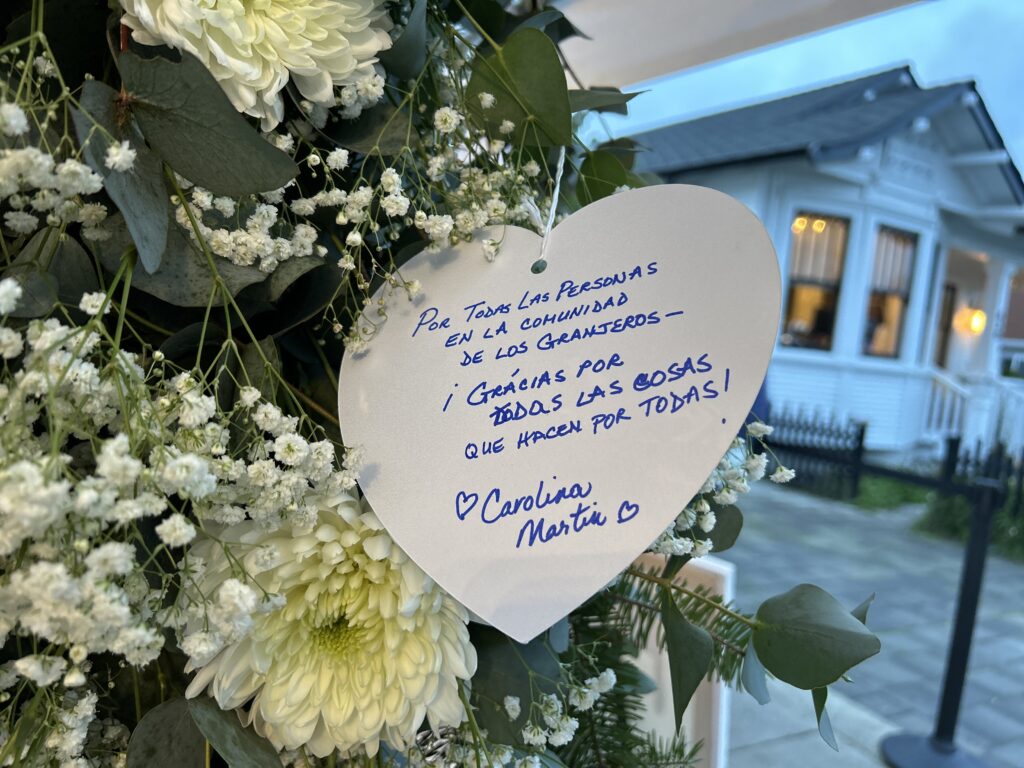 POR TODAS LAS PERSONAS
EN LA COMUNIDAD
DE LOS GRANJEROS—
¡ GRÁCIAS POR
TODAS LAS COSAS
QUE HACEN POR TODAS!
♡ Carolina
Martin ♡